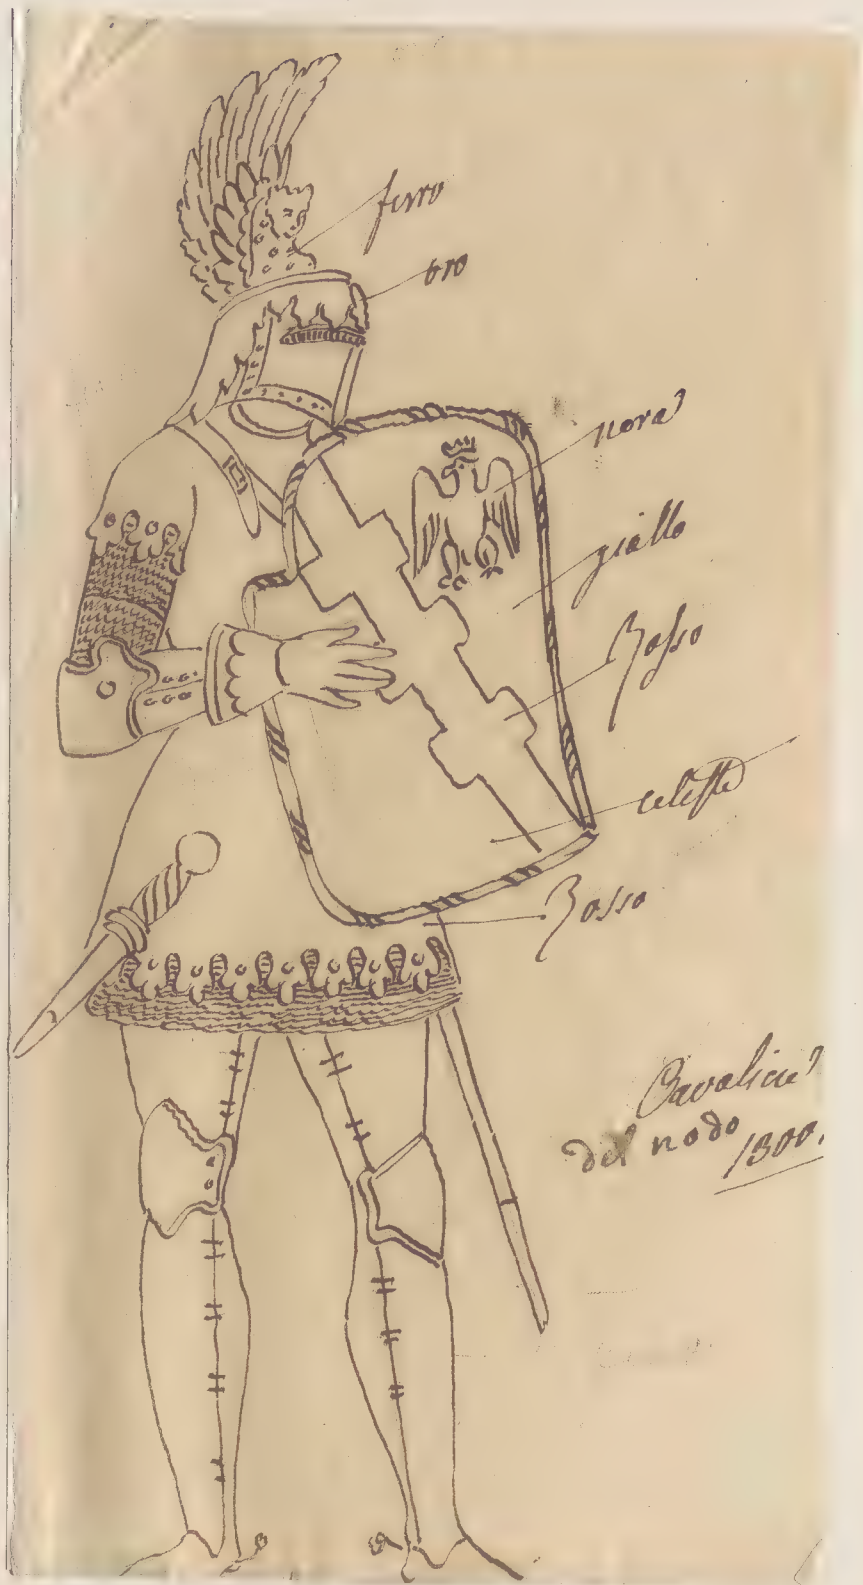 ferro
oro
nera
giallo
Rosso
celeste
Rosso
Cavalier
del nodo
1300.